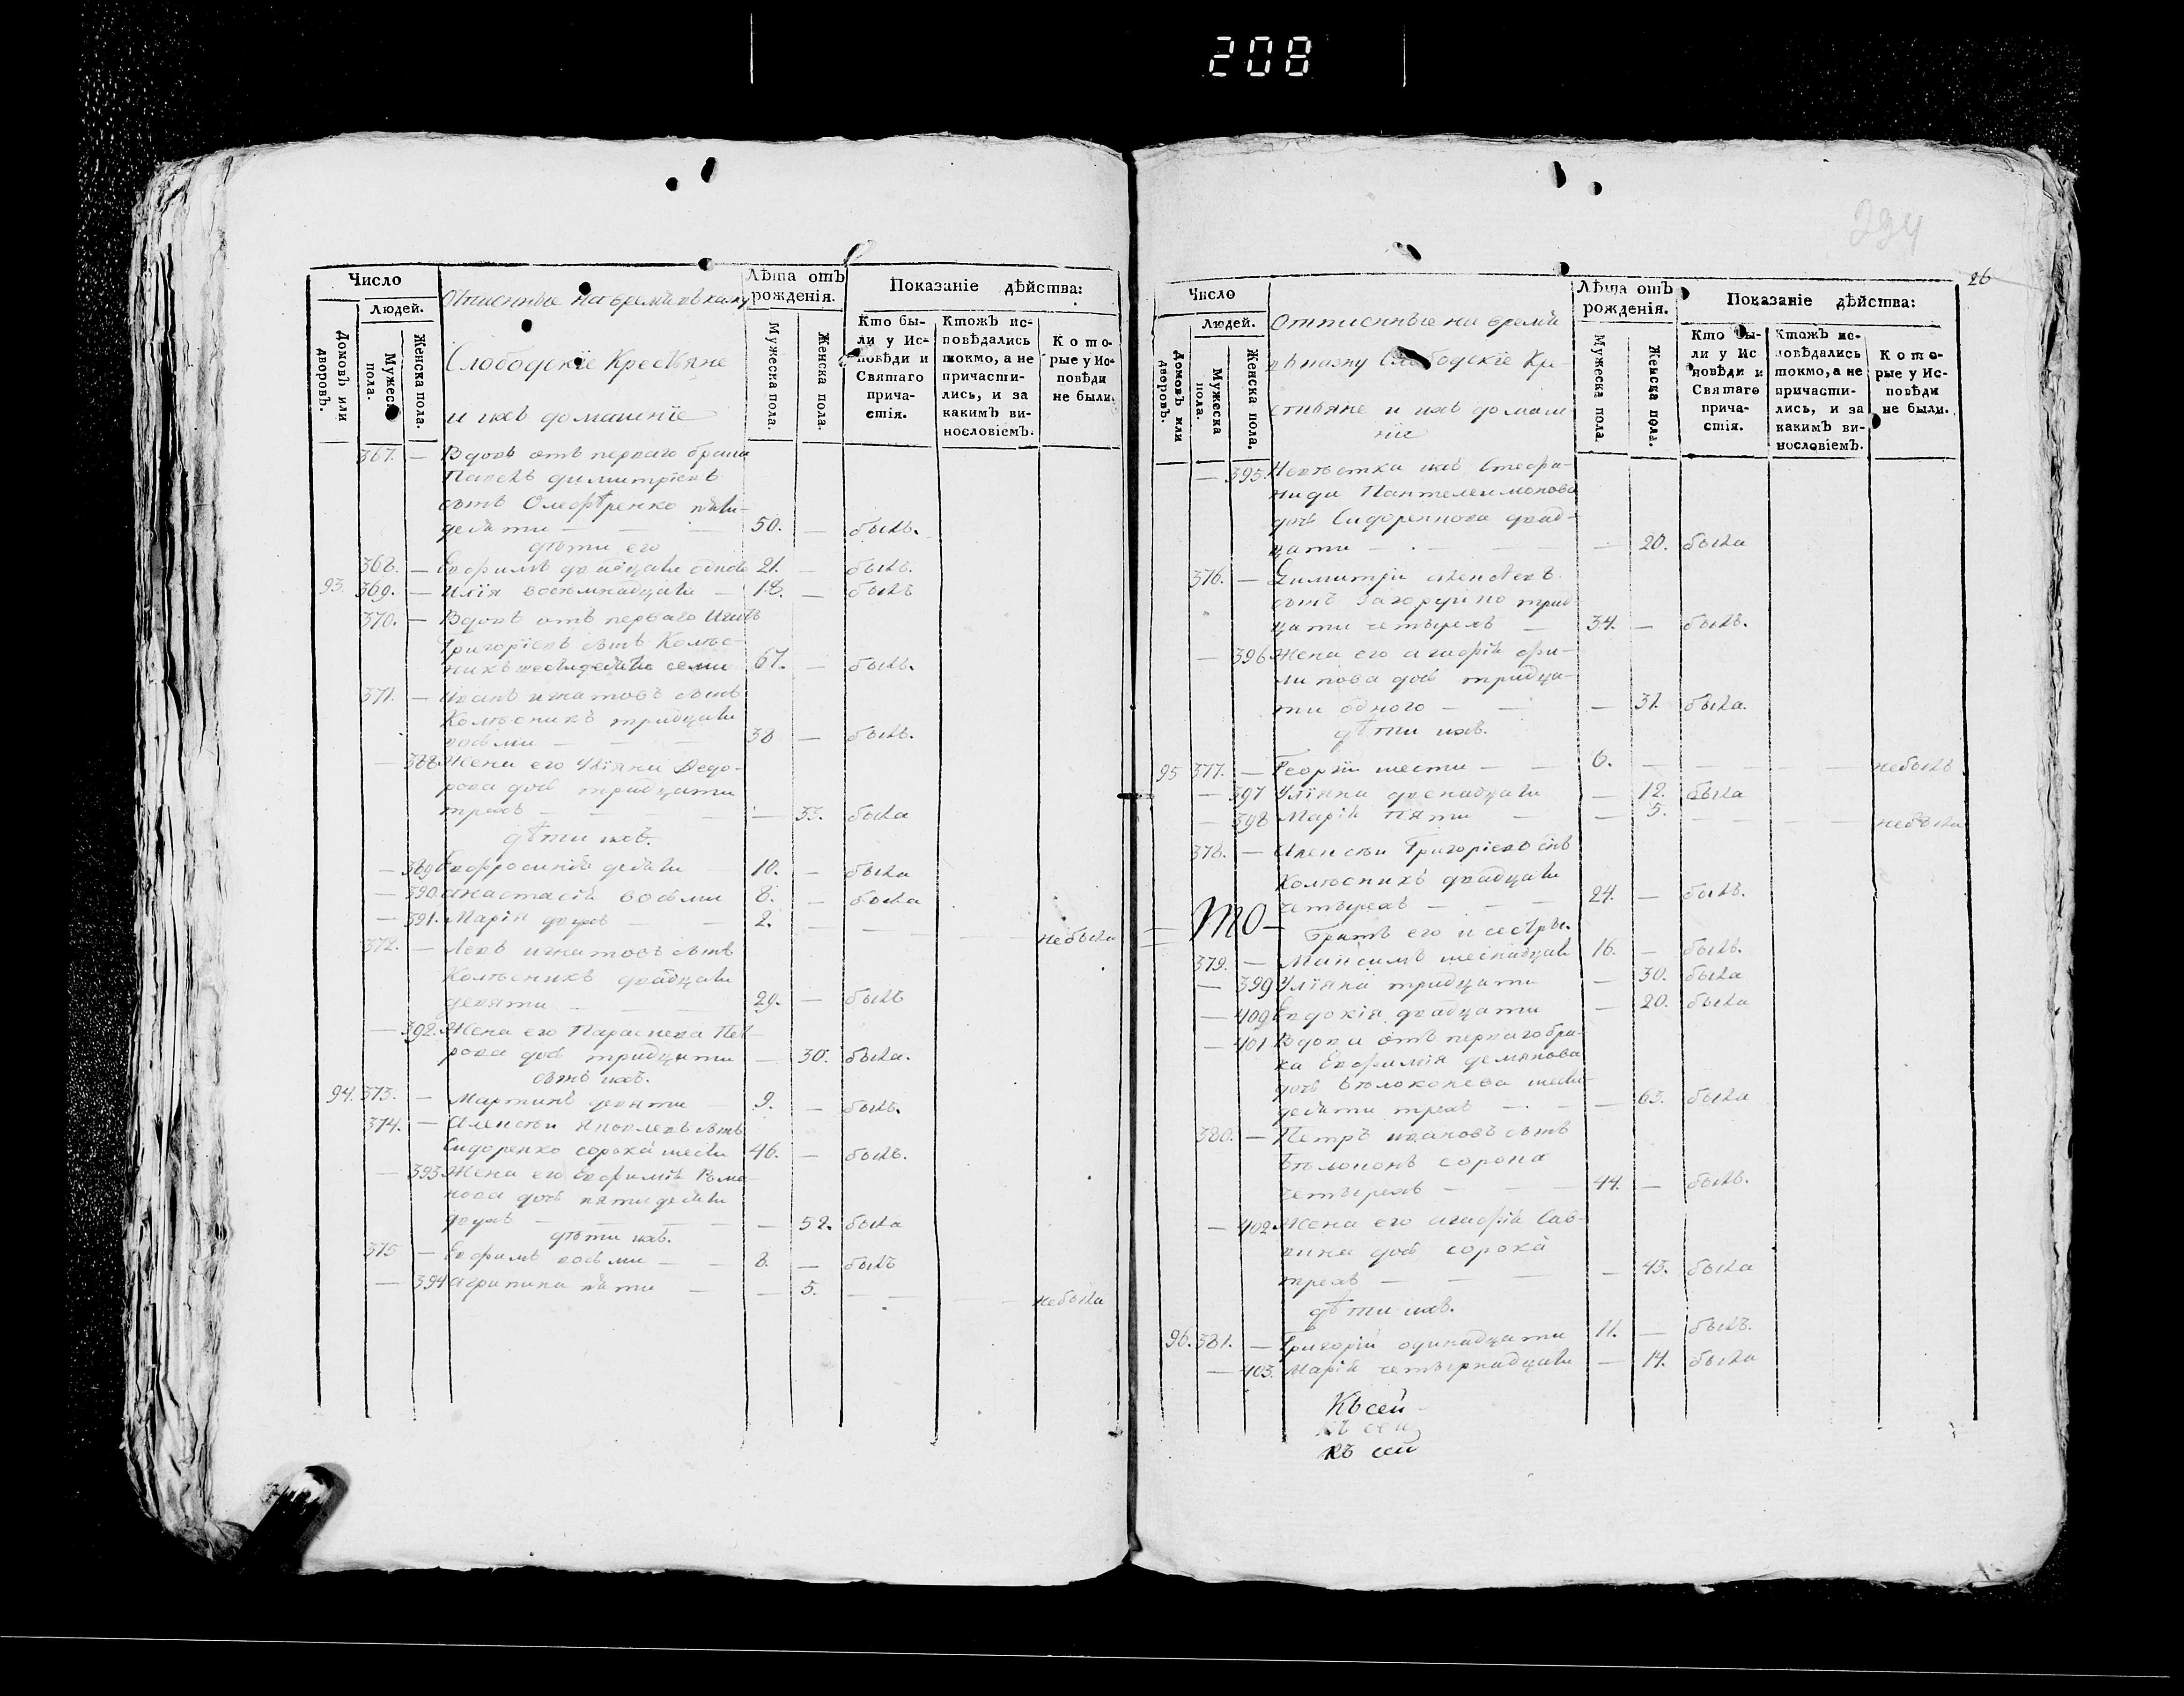 208
294
26
Число
Людей.
Домовъ или дворовъ.
Мужеска пола.
Женска пола.
Отписнные на время въ казну
Слободскїе Крестьяне
и ихъ домашнїе
Лѣта отъ рожденія.
Мужеска пола.
Женска пола.
Показаніе дѣйства:
Кто были у Исповѣди и Святаго причастія.
Ктожъ исповѣдались токмо, а не причастились, и за какимъ винословіемъ.
Которые у Исповѣди не были.
367. — Вдовъ отъ перваго брака
Димитрїевъ
сынъ
десяти — 50. — былъ.
дѣти его
368. — Евфимъ двадцати 21. — былъ.
93. 369. — Илїя восемнадцати — 18. — былъ
370. — Вдовъ отъ перваго
Григорїевъ сынъ Колѣс-
никъ шестидесяти семи 67. — былъ.
371. — Иванъ игнатовъ сынъ
Колѣсникъ тридцати
восьми — 38 — былъ.
— 388 Жена его Улїяна Федо-
рова дочь тридцати
трехъ — — 33. была
дѣти ихъ.
— 389 Евфросинїя десяти 10. — была
— 390. анастасїя восьми 8. — была
— 391. Марїя двухъ — 2. — — — небыла
372. — Левъ игнатовъ сынъ
Колѣсникъ двадцати
девяти 29. — былъ
— 392. Жена его Параскева Пет-
рова дочь тридцати — 30. была.
сынъ ихъ.
94. 373. — Мартинъ девяти 9. — былъ.
374. — Алексѣй Яковлевъ сынъ
Сидоренко сорока шести 46. — былъ.
— 393 Жена его Евфимїя Рома-
нова дочь пятидесяти
двухъ — — 52. была
дѣти ихъ.
375 — Евфимъ восьми — 8. — былъ
— 394 агрипина пяти — — 5. — — небыла
Число
Людей.
Домовъ или дворовъ.
Мужеска пола.
Женска пола.
Отписнные на время
въ казну Слободскїе Кре-
стьяне и ихъ домаш-
нїе
Лѣта отъ рожденія.
Мужеска пола.
Женска пола.
Показаніе дѣйства:
Кто были у Исповѣди и Святаго причастія.
Ктожъ исповѣдались токмо, а не причастились, и за какимъ винословіемъ.
Которые у Исповѣди не были.
— 395. Невѣстка ихъ Стефа-
нида Пантелеимонова
дочь Сидоренкова двад-
цати — — 20. была
376. — Димитрїй алексѣевъ
сынъ трид-
цати четырехъ — 34. — былъ.
— 396 Жена его агафїя фи-
липова дочь тридца-
ти одного — — 31. была.
дѣти ихъ.
95 377. — Георгїй шести — 6. — — — небылъ
— 397 Улїяна двенадцати — 12. была
— 398 Марїя пяти — 5. — — небыла
378. — Алексѣй Григорїевъ сынъ
Колѣсникъ двадцати
четырехъ — 24. — былъ.
то — братъ его и сестры.
379. — Максимъ шеснадцати 16. — былъ.
— 399 Улїяна тридцати — 30. была
— 409 Евдокїя двадцати — 20. была
— 401 Вдова отъ перваго бра-
ка Евфимїя демянова
дочь Бѣлоконева шести-
десяти трехъ — — 63. была
380. — Петръ ивановъ сынъ
Бѣлоконъ сорока
четырехъ — 44. — былъ.
— 402 Жена его агафїя Сав-
вина дочь сорока
трехъ — — 43. была
дѣти ихъ.
96. 381. — Григорїй одинадцати 11. — былъ.
— 403. Марїя четырнадцати — 14. была
Къ сей
къ сей
къ сей